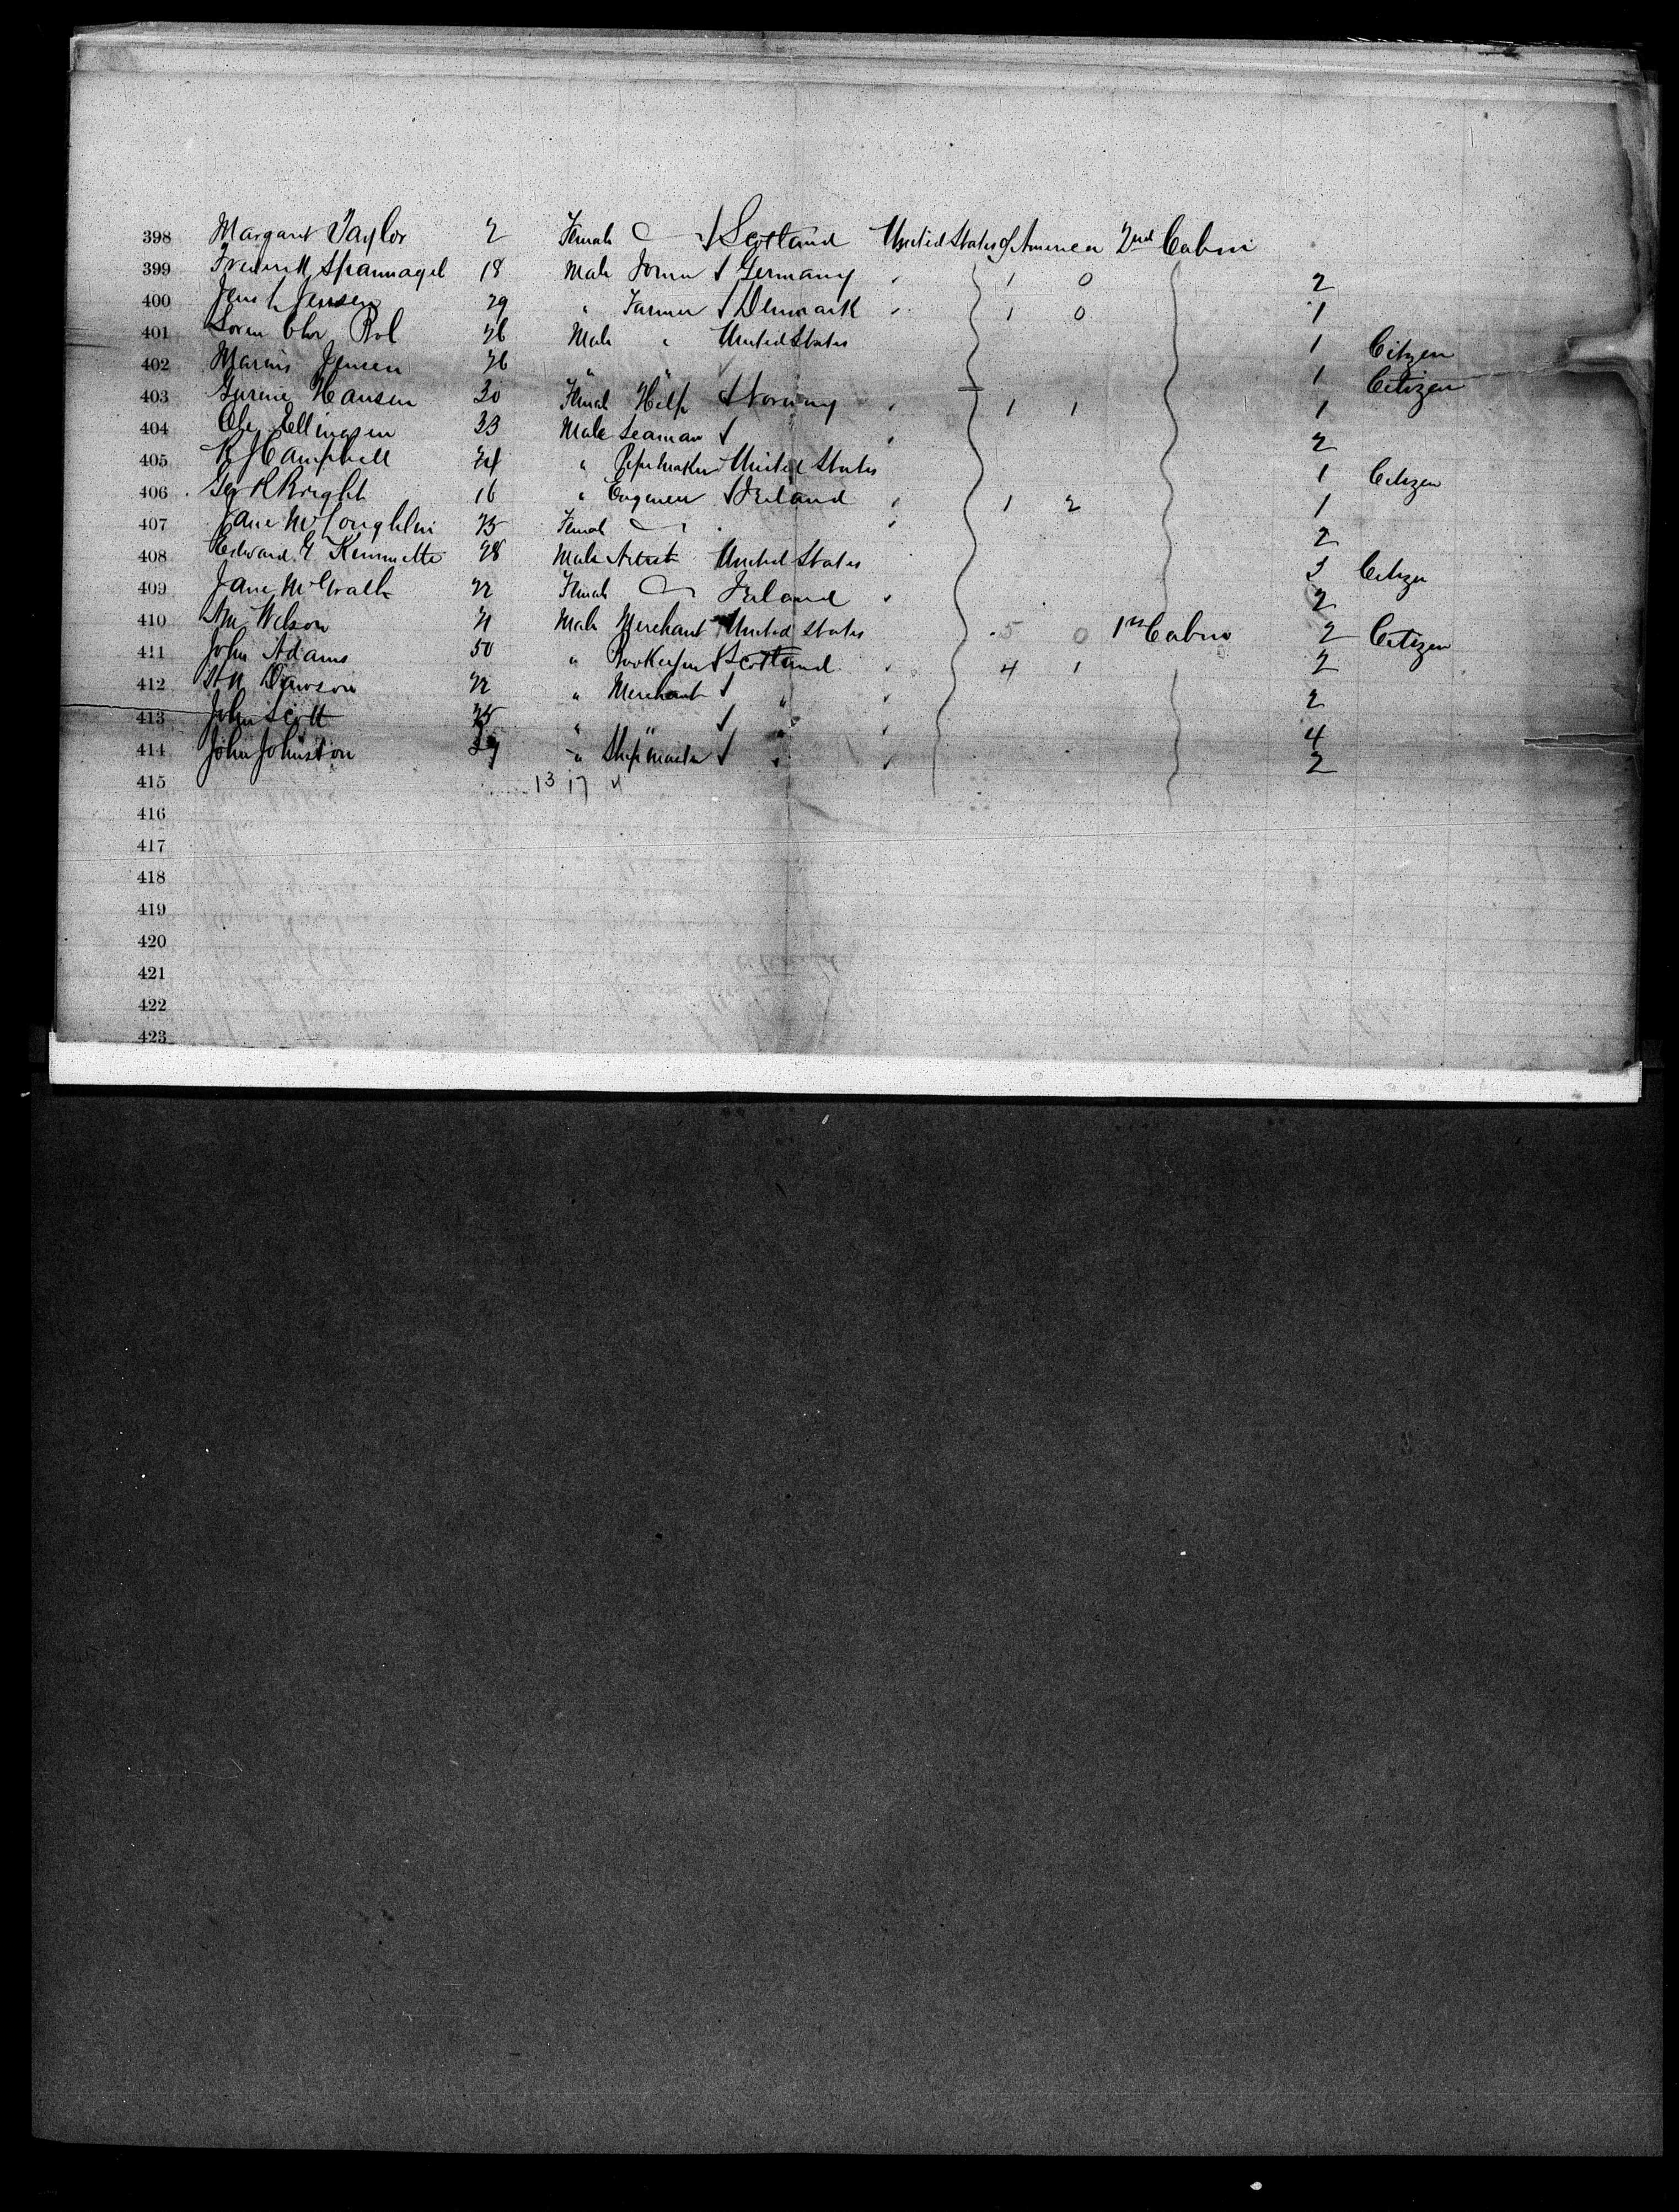 398 Margaret Taylor 2 Female Scotland United States of America 2nd Cabin
399 Frederick Spannagel 18 Male Germany " 1 0 2
400 Jens Jensen 29 " Farmer Denmark " 1 0 1
401 Soren Chr 26 Male " United States 1 Citizen
402 Marius Jensen 26 " " 1 Citizen
403 Hansen 30 Female Help Norway " 1 1 1
404 Ole Ellingsen 23 Male Seaman " 2
405 R J Campbell 24 " United States 1 Citizen
406 Geo R Bright 16 " Engineer Ireland " 1 2 1
407 Jane McLoughlin 25 Female " 2
408 Edward 28 Male Artist United States 3 Citizen
409 Jane McGrath 22 Female Ireland " 2
410 Wm Wilson 21 Male Merchant United States 5 0 1st Cabin 2 Citizen
411 John Adams 50 " Bookkeeper Scotland " 4 1 2
412 Dawson 22 " Merchant " " 2
413 John Scott 25 " " " " 4
414 John Johnston " Shipmaster " " 2
415 13 17
416
417
418
419
420
421
422
423